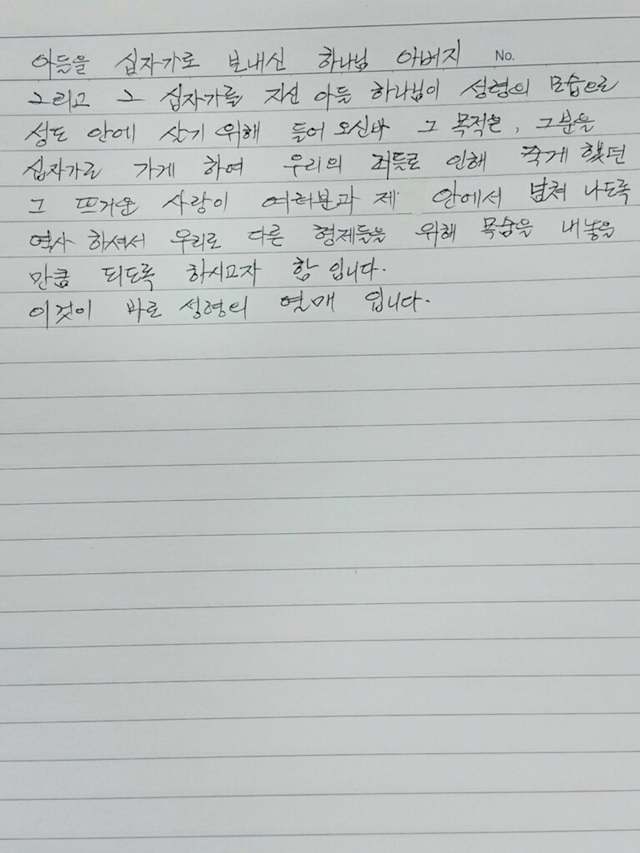 아들을 십자가로 보내신 하나님 아버지 No.
그리고 그 십자가를 지신 아들 하나님이 성령의 모습으로
성도 안에 살기 위해 들어 오신바 그 목적은, 그분을
십자가로 가게 하여 우리의 죄들로 인해 죽게 했던
그 뜨거운 사랑이 여러분과 제 안에서 넘쳐 나도록
역사 하셔서 우리로 다른 형제들을 위해 목숨을 내놓을
만큼 되도록 하시고자 함 입니다.
이것이 바로 성령의 열매 입니다.